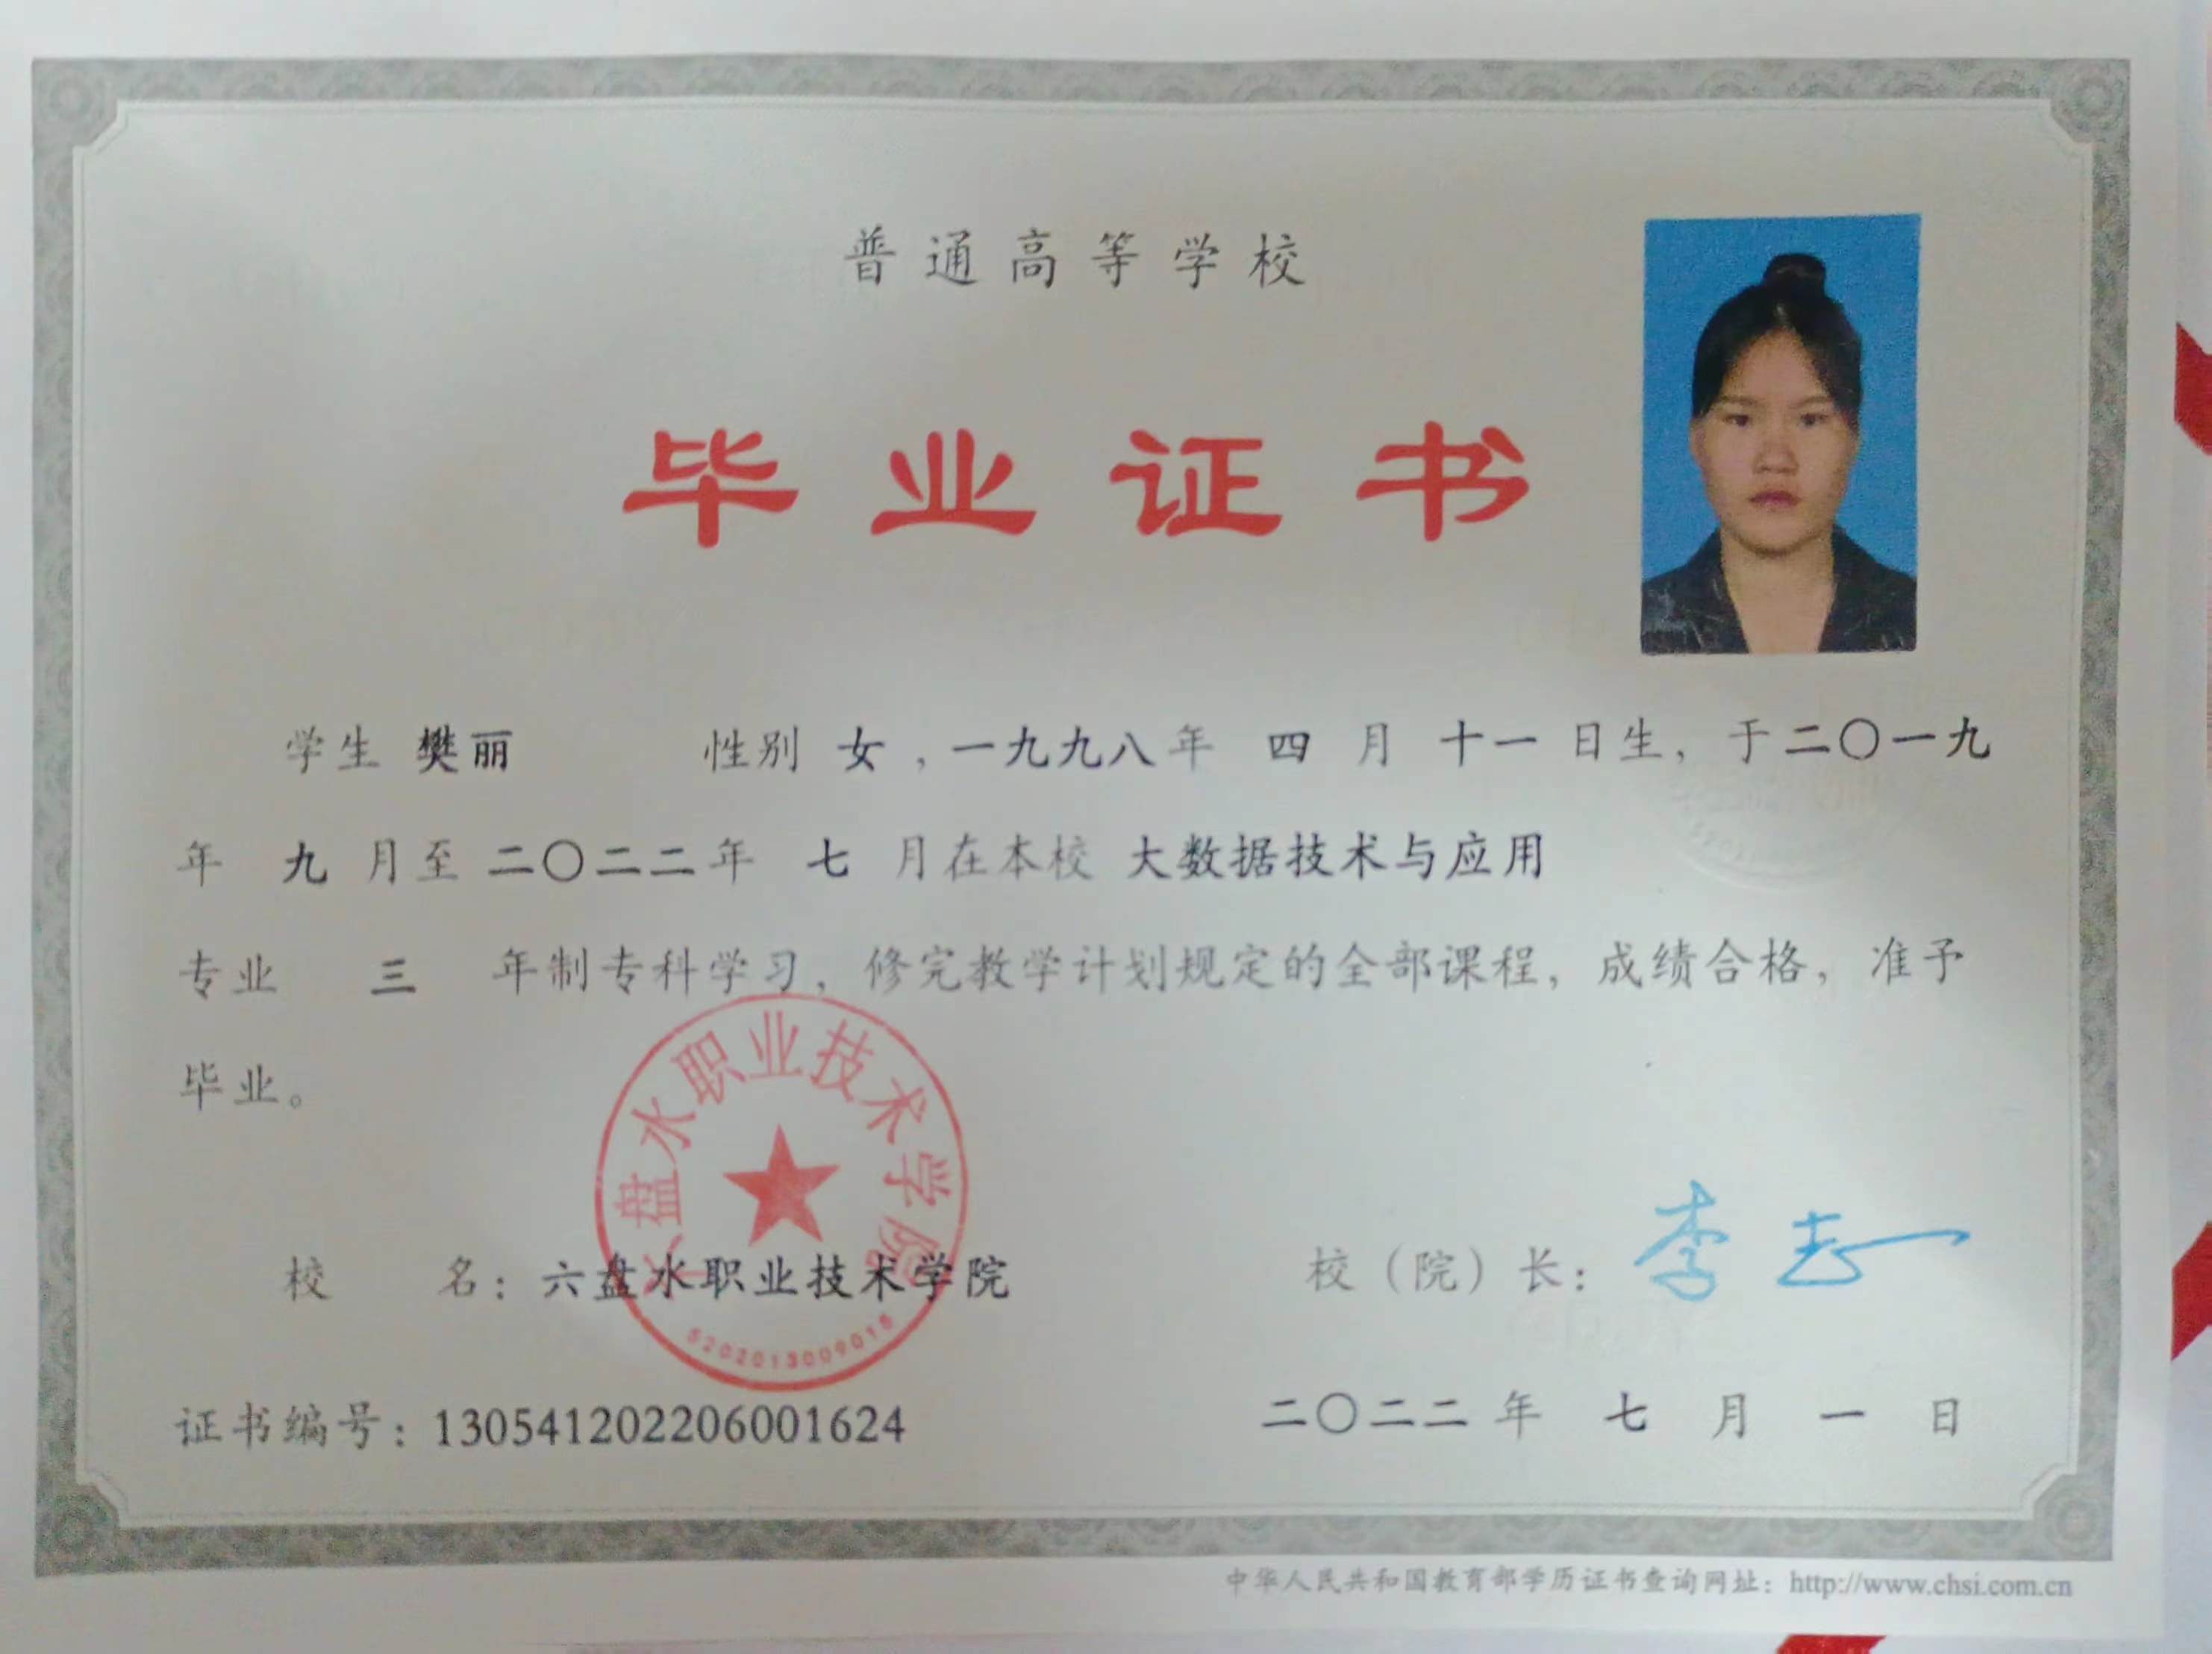 普通高等学校
毕业证书
学生 樊丽 性别 女 ,一九九八年 四 月 十一 日生, 于二〇一九
年 九 月至 二〇二二年 七 月在本校 大数据技术与应用
专业 三 年制专科学习, 修完教学计划规定的全部课程, 成绩合格, 准予
毕业。
六盘水职业技术学院
校 名: 六盘水职业技术学院
校（院）长: 李志
5202013009015
证书编号: 130541202206001624
二〇二二 年 七 月 一 日
中华人民共和国教育部学历证书查询网址: http://www.chsi.com.cn